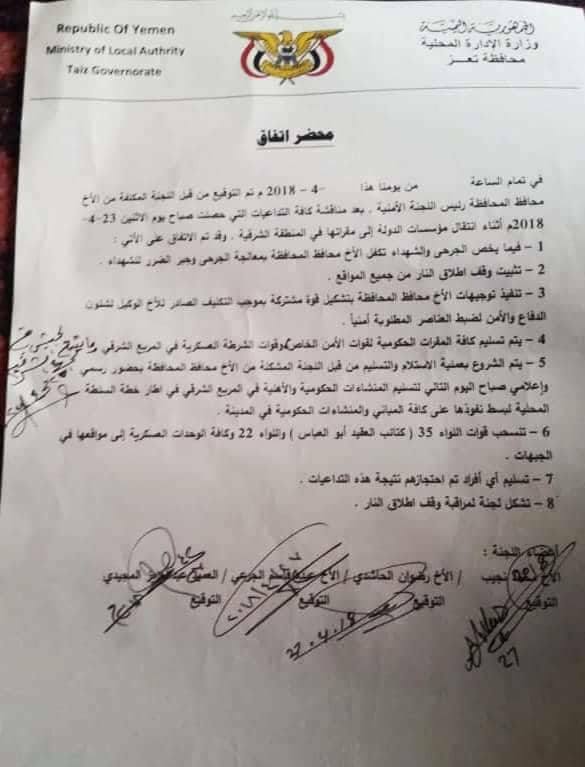 Republic Of Yemen
Ministry of Local Authrity
Taiz Governorate
الجمهورية اليمنية
وزارة الإدارة المحلية
محافظة تعز
محضر اتفاق
في تمام الساعة من يومنا هذا -4 – 2018 م تم التوقيع من قبل اللجنة المكلفة من الأخ
محافظ المحافظة رئيس اللجنة الأمنية . بعد مناقشة كافة التداعيات التي حصلت صباح يوم الاثنين 23-4-
2018م أثناء انتقال مؤسسات الدولة إلى مقراتها في المنطقة الشرقية . وقد تم الاتفاق على الأتي :
1 – فيما يخص الجرحى والشهداء تكفل الأخ محافظ المحافظة بمعالجة الجرحى وجبر الضرر للشهداء .
2 – تثبيت وقف اطلاق النار من جميع المواقع .
3 – تنفيذ توجيهات الأخ محافظ المحافظة بتشكيل قوة مشتركة بموجب التكليف الصادر للأخ الوكيل لشئون
الدفاع والأمن لضبط العناصر المطلوبة أمنياً .
4 – يتم تسليم كافة المقرات الحكومية لقوات الأمن الخاص وقوات الشرطة العسكرية في المربع الشرقي
5 – يتم الشروع بعملية الاستلام والتسليم من قبل اللجنة المشكلة من الأخ محافظ المحافظة بحضور رسمي
وإعلامي صباح اليوم التالي لتسليم المنشاءات الحكومية والأهنية في المربع الشرقي في اطار خطة السلطة
المحلية لبسط نفوذها على كافة المباني والمنشاءات الحكومية في المدينة .
6 – تنسحب قوات اللواء 35 ( كتائب العقيد أبو العباس ) واللواء 22 وكافة الوحدات العسكرية إلى مواقعها في
الجبهات .
7 – تسليم أي أفراد تم احتجازهم نتيجة هذه التداعيات .
8 – تشكل لجنة لمراقبة وقف اطلاق النار .
أعضاء اللجنة :
الأخ نجيب / الأخ رضوان الحاشدي / الأخ الجرعي / العميد المجيدي
التوقيع التوقيع التوقيع التوقيع
27.4.18
27